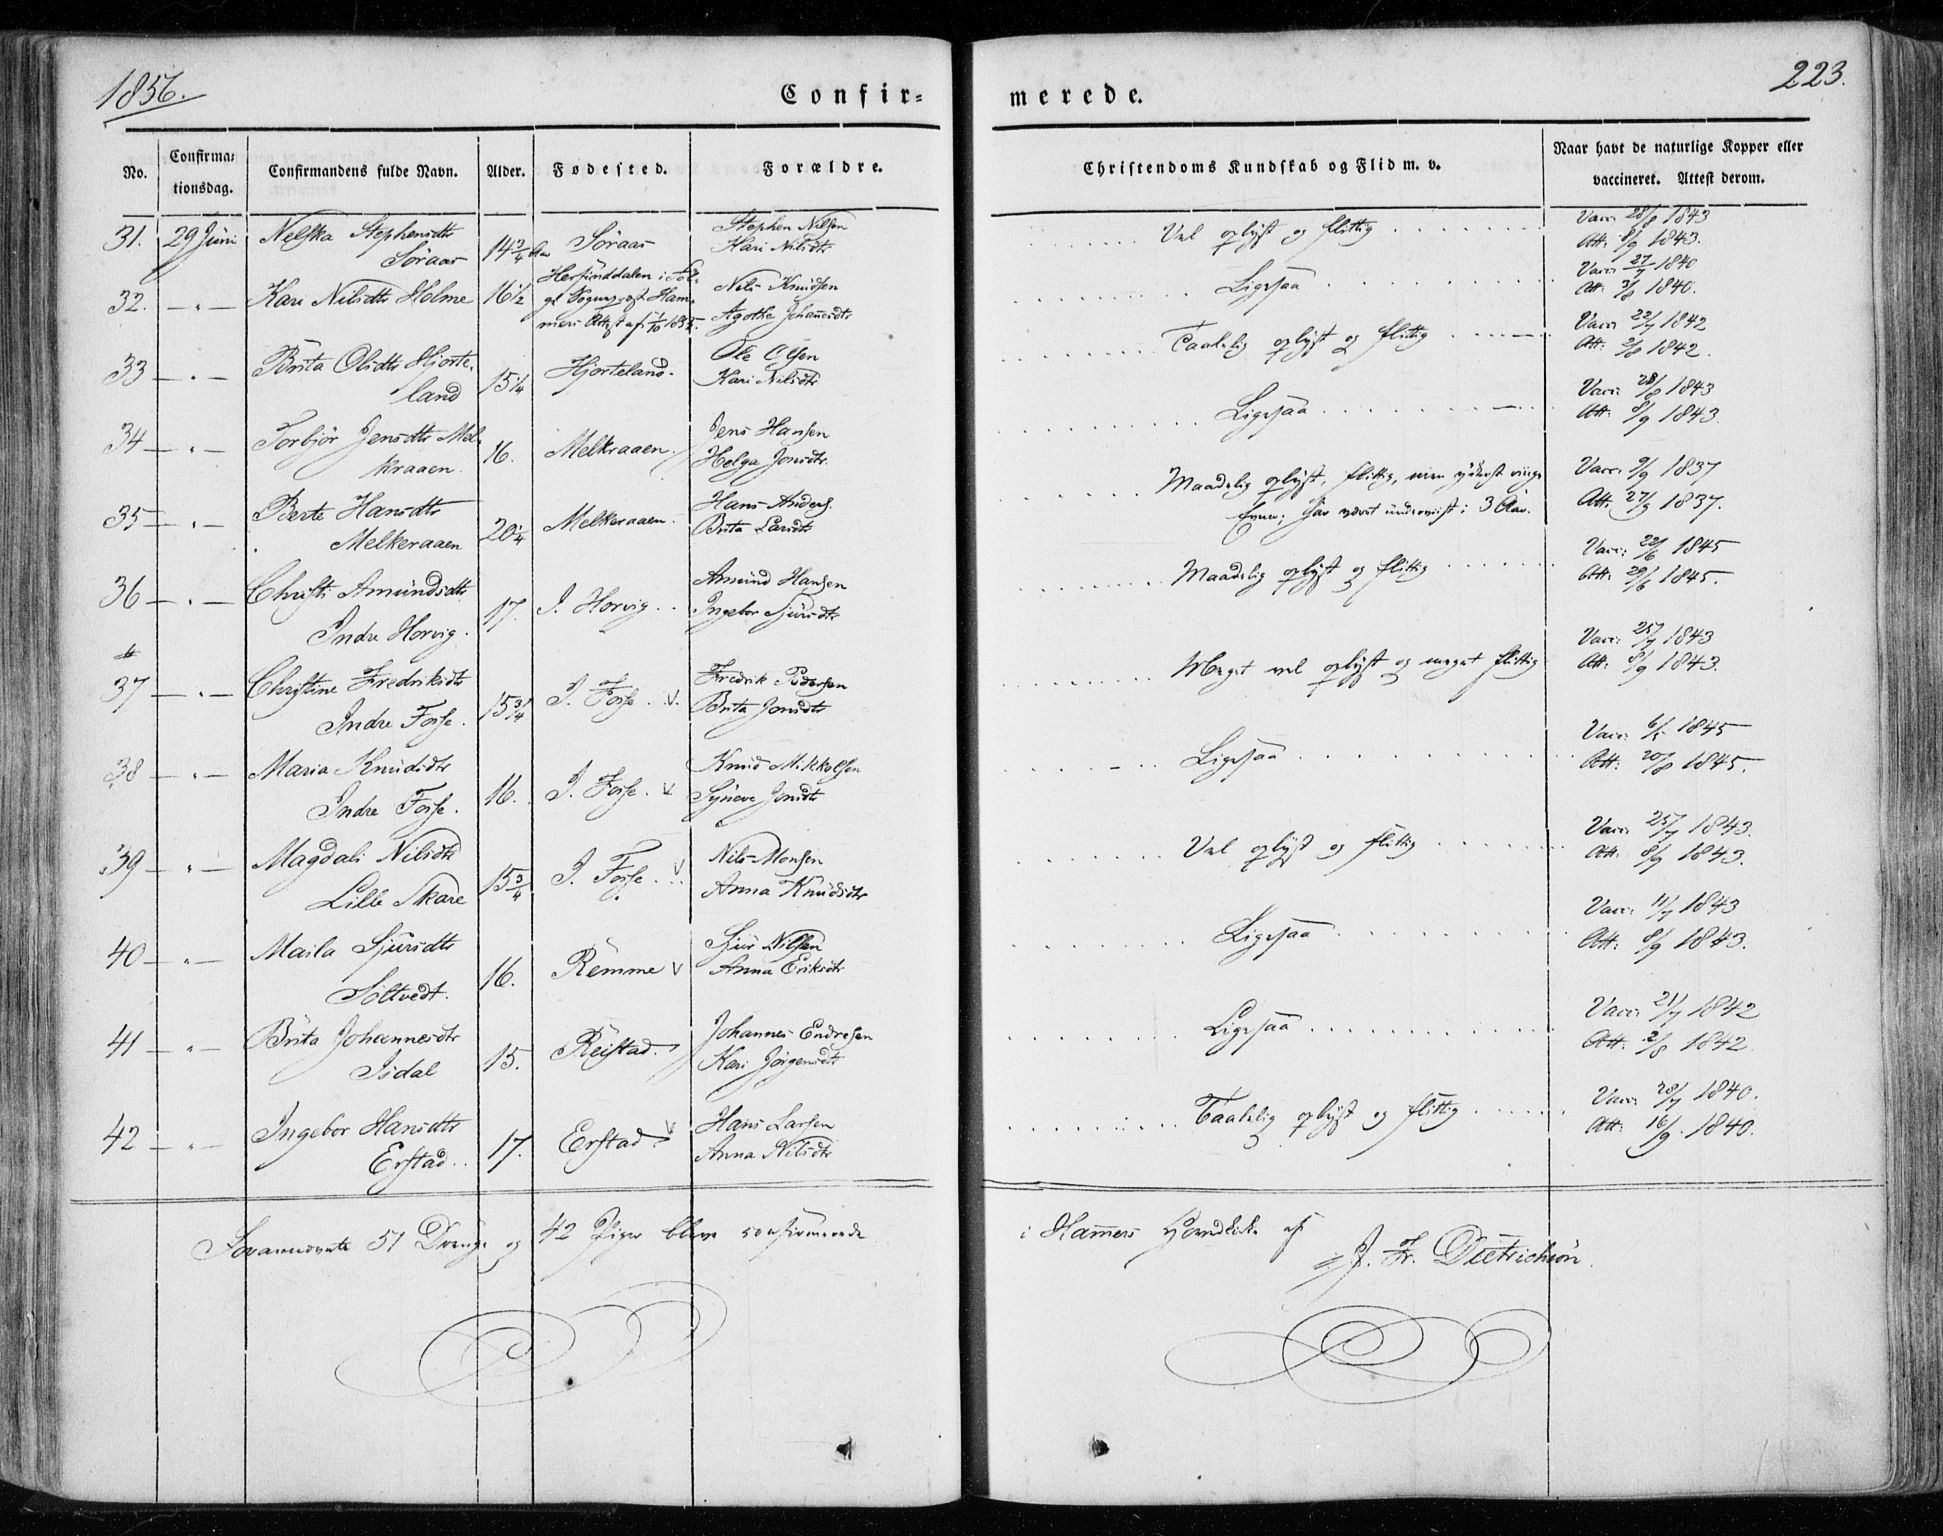 1856.
Confir=
merede.
223.
No.
Confirma=
tionsdag.
Confirmandens fulde Navn.
Alder.
Fødested.
Forældre.
Christendoms Kundskab og Flid m. v.
Naar havt de naturlige Kopper eller
vaccineret. Attest derom.
31. 29 Juni Nelska Stephensdtr 14 3/4 Aar Søraas Stephen Nilsen Vel oplyst og flittig Vacc: 28/8 1843
Søraas Kari Nilsdtr Att: 8/9 1843.
32. — " — Kari Nilsdtr Holme 16 1/2 Nils Knudsen Ligesaa Vacc: 27/7 1840
Agathe Johannesdtr Att: 3/8 1840.
33 — " — Brita Olsdtr Hjorte= 15 1/4 Hjorteland. Ole Olsen Taalelig oplyst og flittig Vacc: 22/7 1842
land Kari Nilsdtr Att: 2/8 1842.
34 — " — Torbjør Jensdtr Mel= 16. Melkraaen. Jens Hansen Ligesaa Vacc: 28/8 1843
kraaen. Helga Jonsdtr. Att: 8/9 1843.
35 — " — Berte Hansdtr 20 1/4 Melkeraaen. Hans Anders. Maadelig oplyst, flittig, men yderst ringe Vacc: 9/9 1837
Melkeraaen Brita Larsdtr Evner; har været underviist i 3 Aar. Att: 27/9 1837.
36 — " — Christi Amundsdtr 17. I. Horvig. Amund Hansen Maadelig oplyst og flittig Vacc: 22/6 1845
Indre Horvig. Ingebor Sjursdtr Att: 29/6 1845.
37 — " — Christine Fredriksdtr 15 3/4 I. Fosse. v. Fredrik Pedersen Meget vel oplyst og meget flittig Vacc: 25/7 1843
Indre Fosse. Brita Jonsdtr Att: 8/9 1843.
38 — " — Maria Knudsdtr 16. I. Fosse. v Knud Mikkelsen Ligesaa Vacc: 6/5 1845
Indre Fosse. Syneve Jonsdtr Att: 20/8 1845.
39 — " — Magdali Nilsdtr 15 3/4 I. Fosse. v Nils Monsen Vel oplyst og flittig Vacc: 25/7 1843.
Lille Skare Anna Knudsdtr Att: 8/9 1843.
40 — " — Maila Sjursdtr 16. Remme v Sjur Nilsen Ligesaa Vacc: 11/7 1843
Soltvedt. Anna Eriksdtr Att: 8/9 1843.
41 — " — Brita Johannesdtr 15. Reistad. Johannes Endresen Ligesaa Vacc: 21/7 1842
Isdal Kari Jørgensdtr Att: 2/8 1842
42 — " — Ingebor Hansdtr 17. Erstad. v Hans Larsen Taalelig oplyst og flittig Vacc: 28/7 1840.
Erstad. Anna Nilsdtr Att: 16/9. 1840.
Forannævnte 51 Drenge og 42 Piger bleve confirmerede i Hammers Hovedkirke af
J. Fr. Dietrichson.